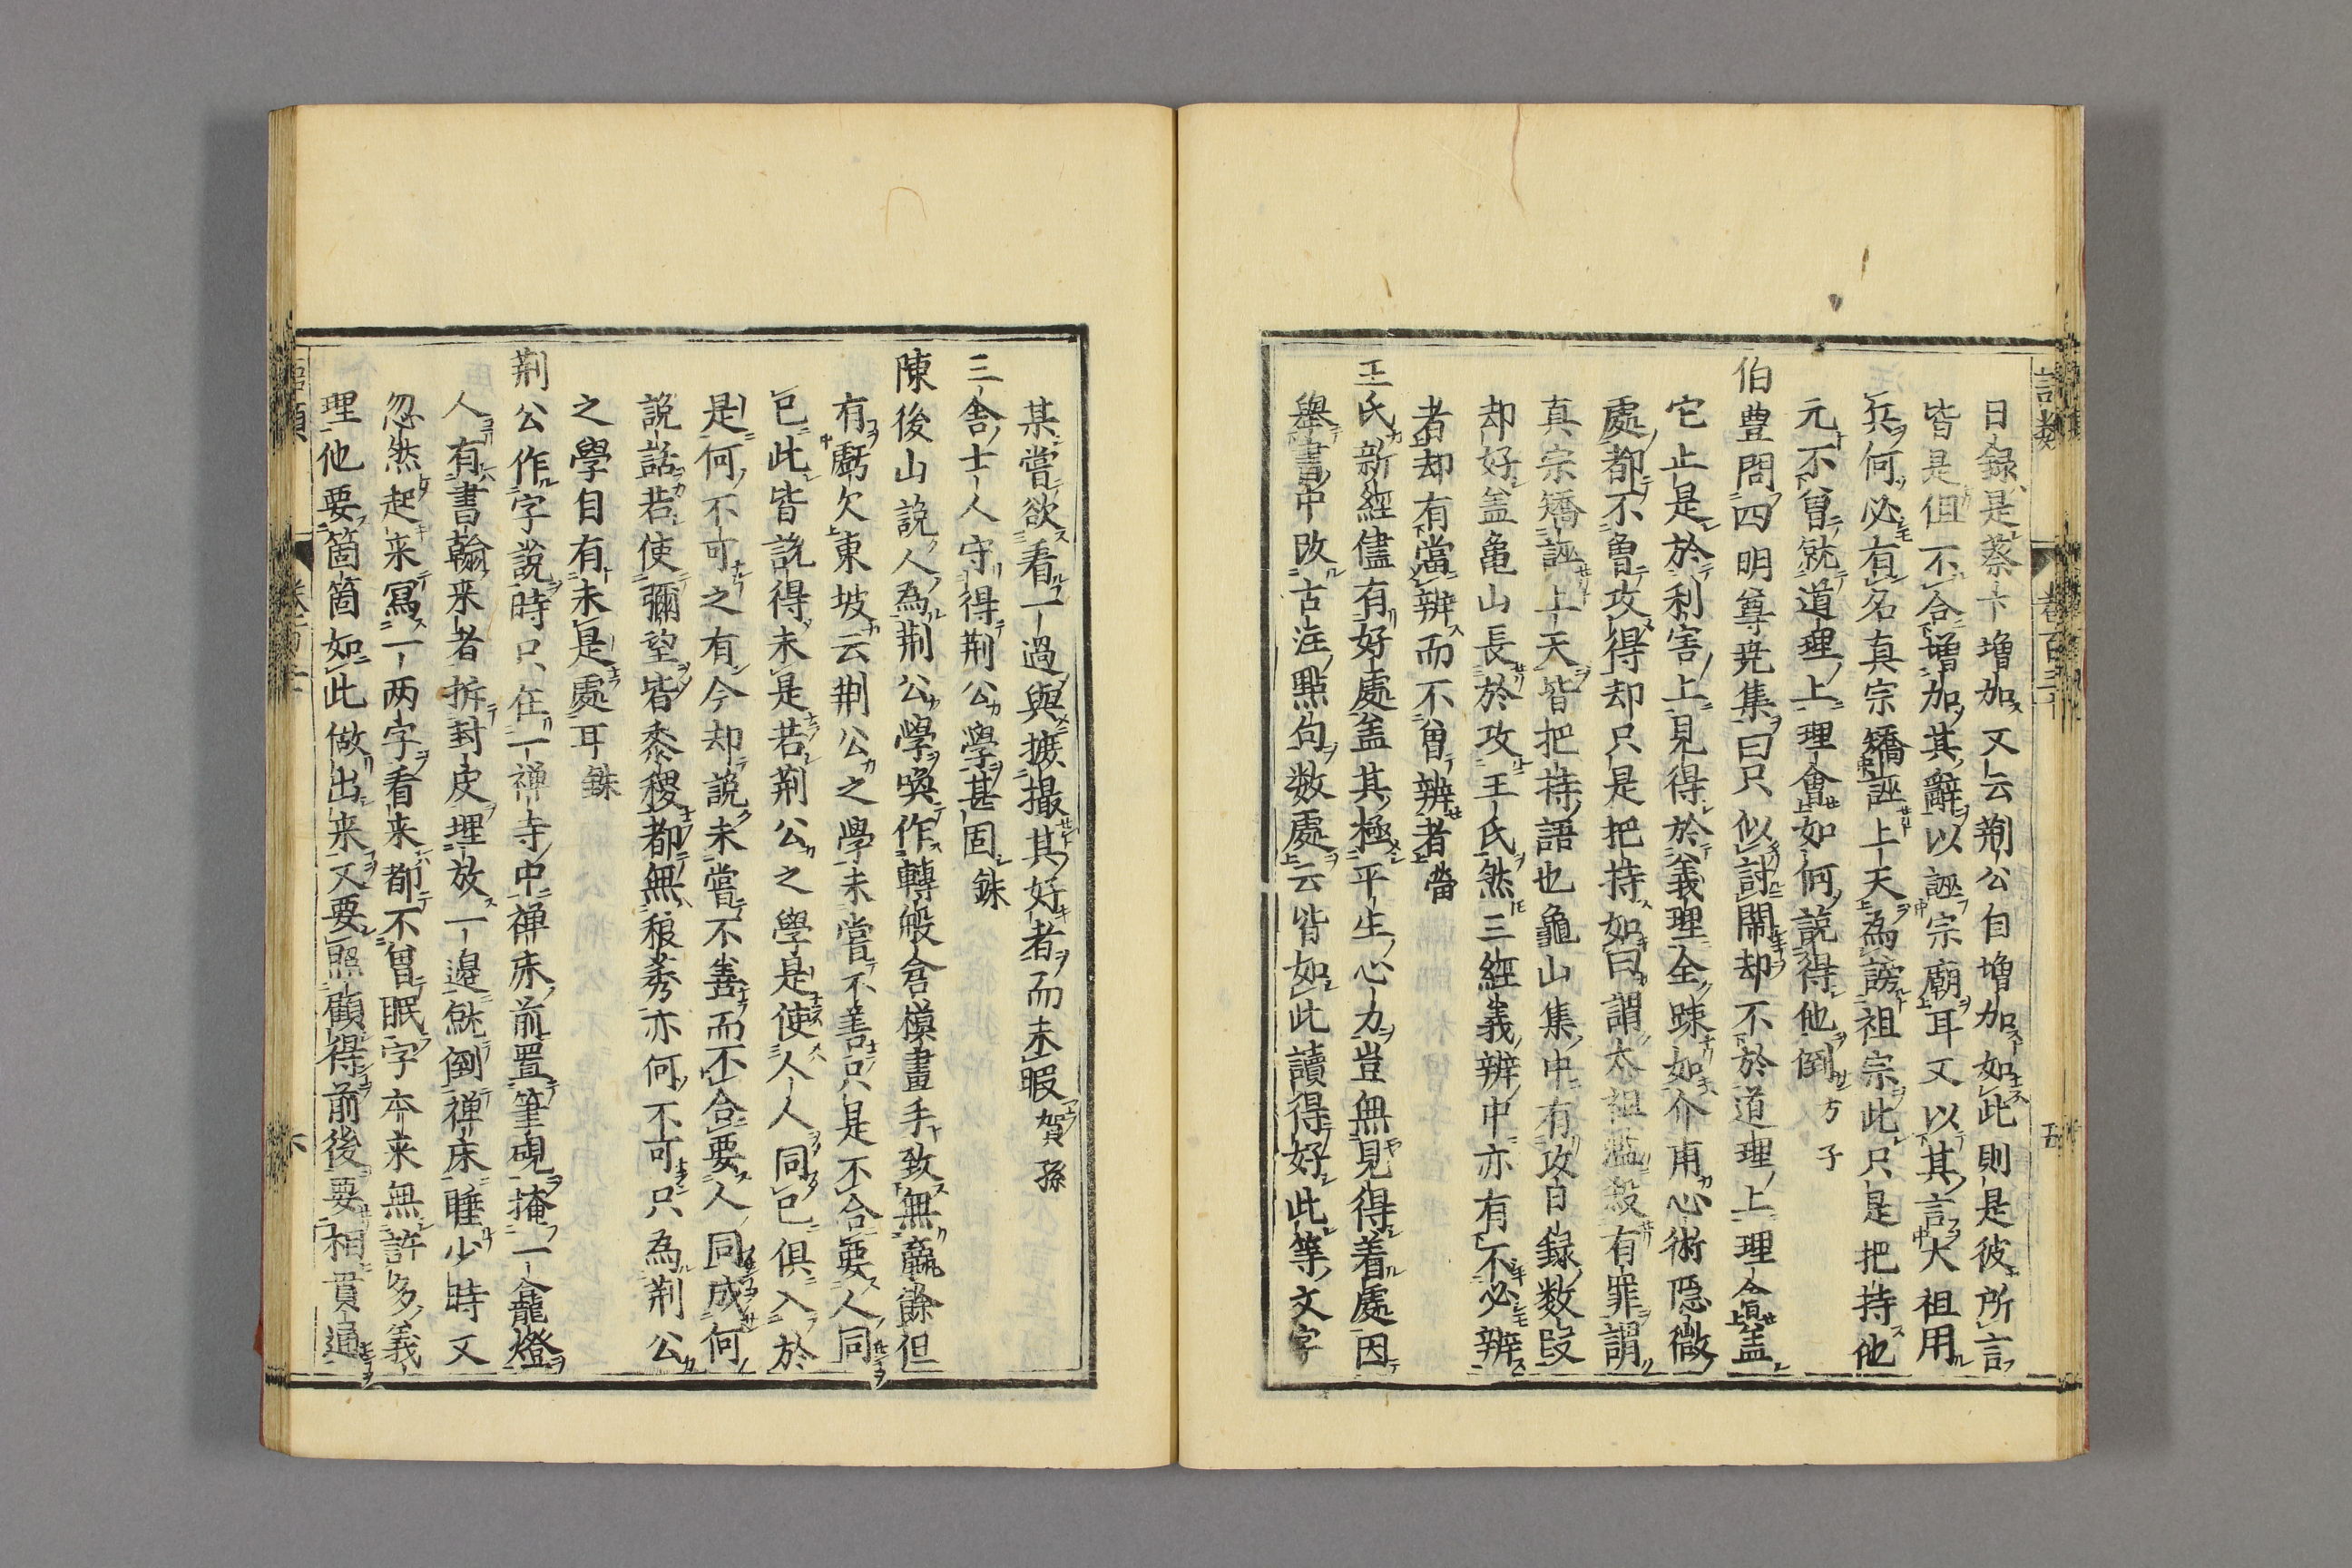 語類 卷百三十 五
日錄是蔡卞增加又云荊公自增加如此則是彼所言
皆是但不合增加其辭以誣宗廟耳又以其言大祖用
兵何必有名真宗矯誣上天為謗祖宗此只是把持他
元不曾就道理上理會如何說得他倒 方子
伯豊問四明尊尭集曰只似討閙却不於道理上理會盖
它止是於利害上見得於義理全踈如介甫心術隱微
處都不曾攻得却只是把持如曰謂太祖濫殺有罪謂
真宗矯誣上天皆把持語也龜山集中有攻日錄数段
却好盖亀山長於攻王氏然三經義辨中亦有不必辨
者却有當辨而不曾辨者 㽦
王氏新經儘有好處盖其極平生心力豈無見得着處因
舉書中改古注點句数處云皆如此讀得好此等文字
某嘗欲看一過與摭撮其好者而未暇 賀孫
三舎士人守得荊公學甚固 銖
陳後山說人為荊公學喚作轉般倉模畫手致無贏餘但
有虧欠東坡云荊公之學未嘗不善只是不合要人同
已此皆說得未是若荊公之學是使人人同已俱入於
是何不可之有今却說未嘗不善而不合要人同成何
說話若使彌望皆黍稷都無稂莠亦何不可只為荊公
之學自有未是處耳 銖
荊公作字說時只在一禅寺中禅床前置筆硯掩一龕燈
人有書翰来者拆封皮埋放一邊就倒禅床睡少時又
忽然起来冩一两字看来都不曾眠字夲来無許多義
理他要箇箇如此做出来又要照顧得前後要相貫通